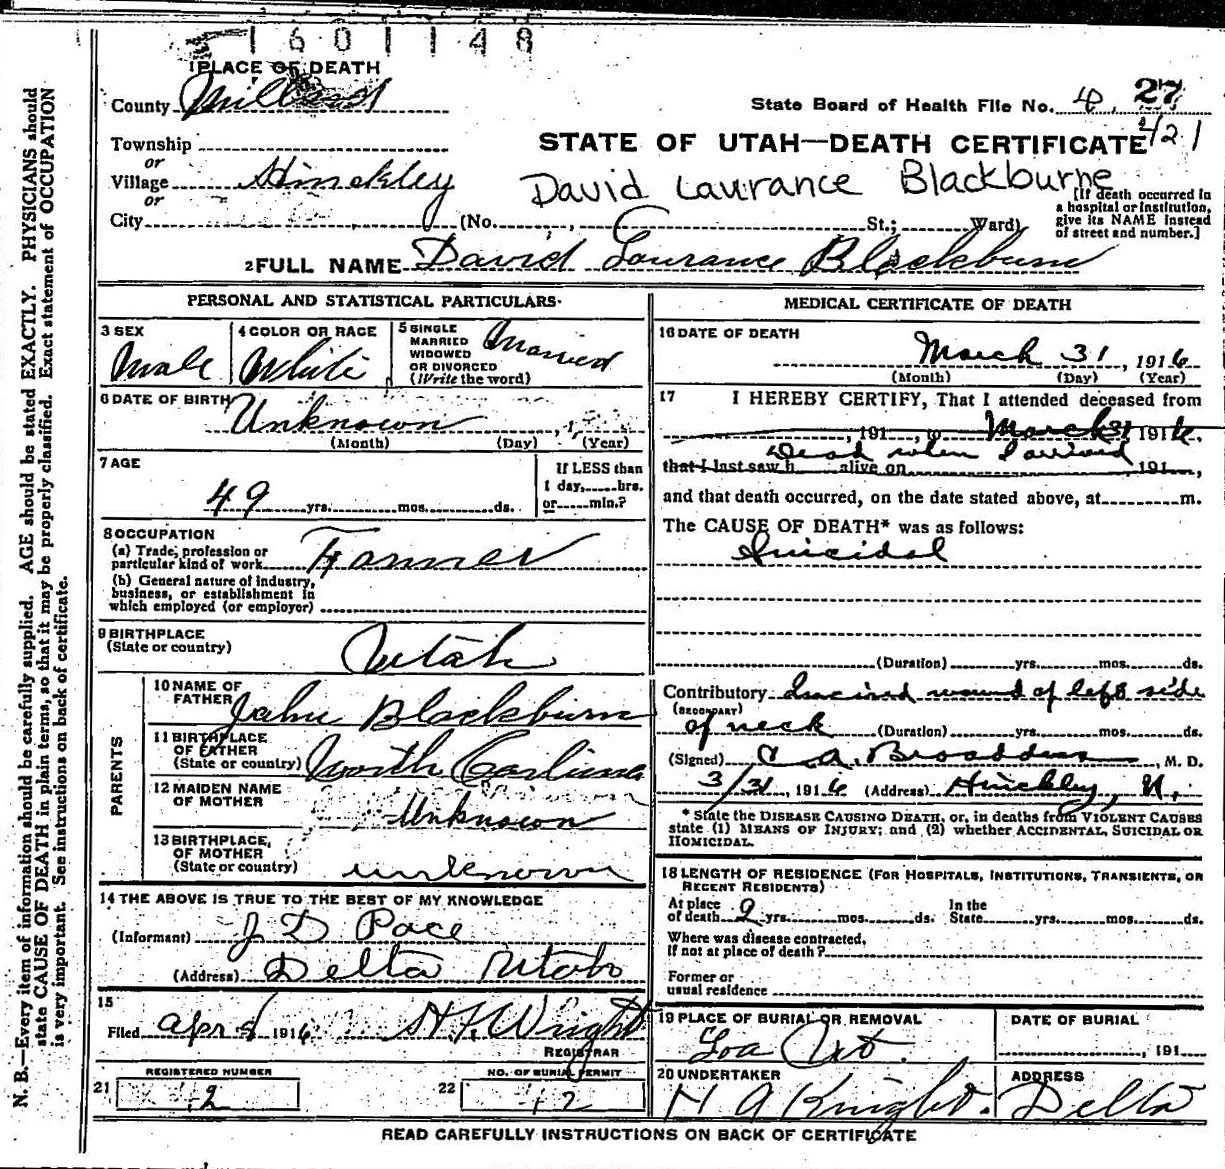 1601148
1 PLACE OF DEATH
County Millard
State Board of Health File No. 27
421
Township
or
Village Hinckley
or
City (No. St.; Ward)
STATE OF UTAH—DEATH CERTIFICATE
David Laurance Blackburne
[If death occurred in
a hospital or institution,
give its NAME instead
of street and number.]
2 FULL NAME David Laurance Blackburn
PERSONAL AND STATISTICAL PARTICULARS
3 SEX
Male
4 COLOR OR RACE
White
5 SINGLE
MARRIED
WIDOWED
OR DIVORCED
(Write the word)
Married
6 DATE OF BIRTH
Unknown , 1
(Month) (Day) (Year)
7 AGE
49 yrs. mos. ds.
If LESS than
1 day, hrs.
or min.?
8 OCCUPATION
(a) Trade, profession or
particular kind of work Farmer
(b) General nature of industry,
business, or establishment in
which employed (or employer)
9 BIRTHPLACE
(State or country)
Utah
PARENTS
10 NAME OF
FATHER
Jahn Blackburn
11 BIRTHPLACE
OF FATHER
(State or country)
North Carlina
12 MAIDEN NAME
OF MOTHER
Unknown
13 BIRTHPLACE,
OF MOTHER
(State or country)
unknown
14 THE ABOVE IS TRUE TO THE BEST OF MY KNOWLEDGE
(Informant) J D Pace
(Address) Delta Utah
15
Filed Apr 1916 H F Wright
REGISTRAR
REGISTERED NUMBER
21 2
NO. OF BURIAL PERMIT
22 12
MEDICAL CERTIFICATE OF DEATH
16 DATE OF DEATH
March 31, 1916
(Month) (Day) (Year)
17 I HEREBY CERTIFY, That I attended deceased from
, 191 , to March 31 1916.
Dead when I arrived
that I last saw h alive on 191 ,
and that death occurred, on the date stated above, at m.
The CAUSE OF DEATH* was as follows:
Suicidal
(Duration) yrs. mos. ds.
Contributory Incised wound of left side
(SECONDARY)
of neck (Duration) yrs. mos. ds.
(Signed) C. A. Broaddus, M. D.
3/31, 1916 (Address) Hinckley, U.
* State the DISEASE CAUSING DEATH, or, in deaths from VIOLENT CAUSES
state (1) MEANS OF INJURY; and (2) whether ACCIDENTAL, SUICIDAL OR
HOMICIDAL.
18 LENGTH OF RESIDENCE (FOR HOSPITALS, INSTITUTIONS, TRANSIENTS, OR
RECENT RESIDENTS)
At place
of death 2 yrs. mos. ds.
In the
State yrs. mos. ds.
Where was disease contracted,
if not at place of death?
Former or
usual residence
19 PLACE OF BURIAL OR REMOVAL
Loa Ut.
DATE OF BURIAL
, 191
20 UNDERTAKER
H A Knight.
ADDRESS
Delta
READ CAREFULLY INSTRUCTIONS ON BACK OF CERTIFICATE
N. B.—Every item of information should be carefully supplied. AGE should be stated EXACTLY. PHYSICIANS should
state CAUSE OF DEATH in plain terms, so that it may be properly classified. Exact statement of OCCUPATION
is very important. See instructions on back of certificate.